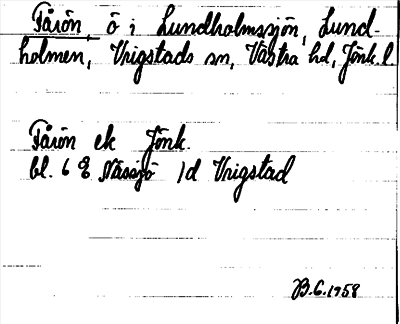 Fårön, ö i Lundholmssjön, Lund-
holmen, Vrigstads sn, Västra hd, Jönk. l.
Fårön ek Jönk.
bl. 6 E Nässjö 1d Vrigstad
B.G. 1958